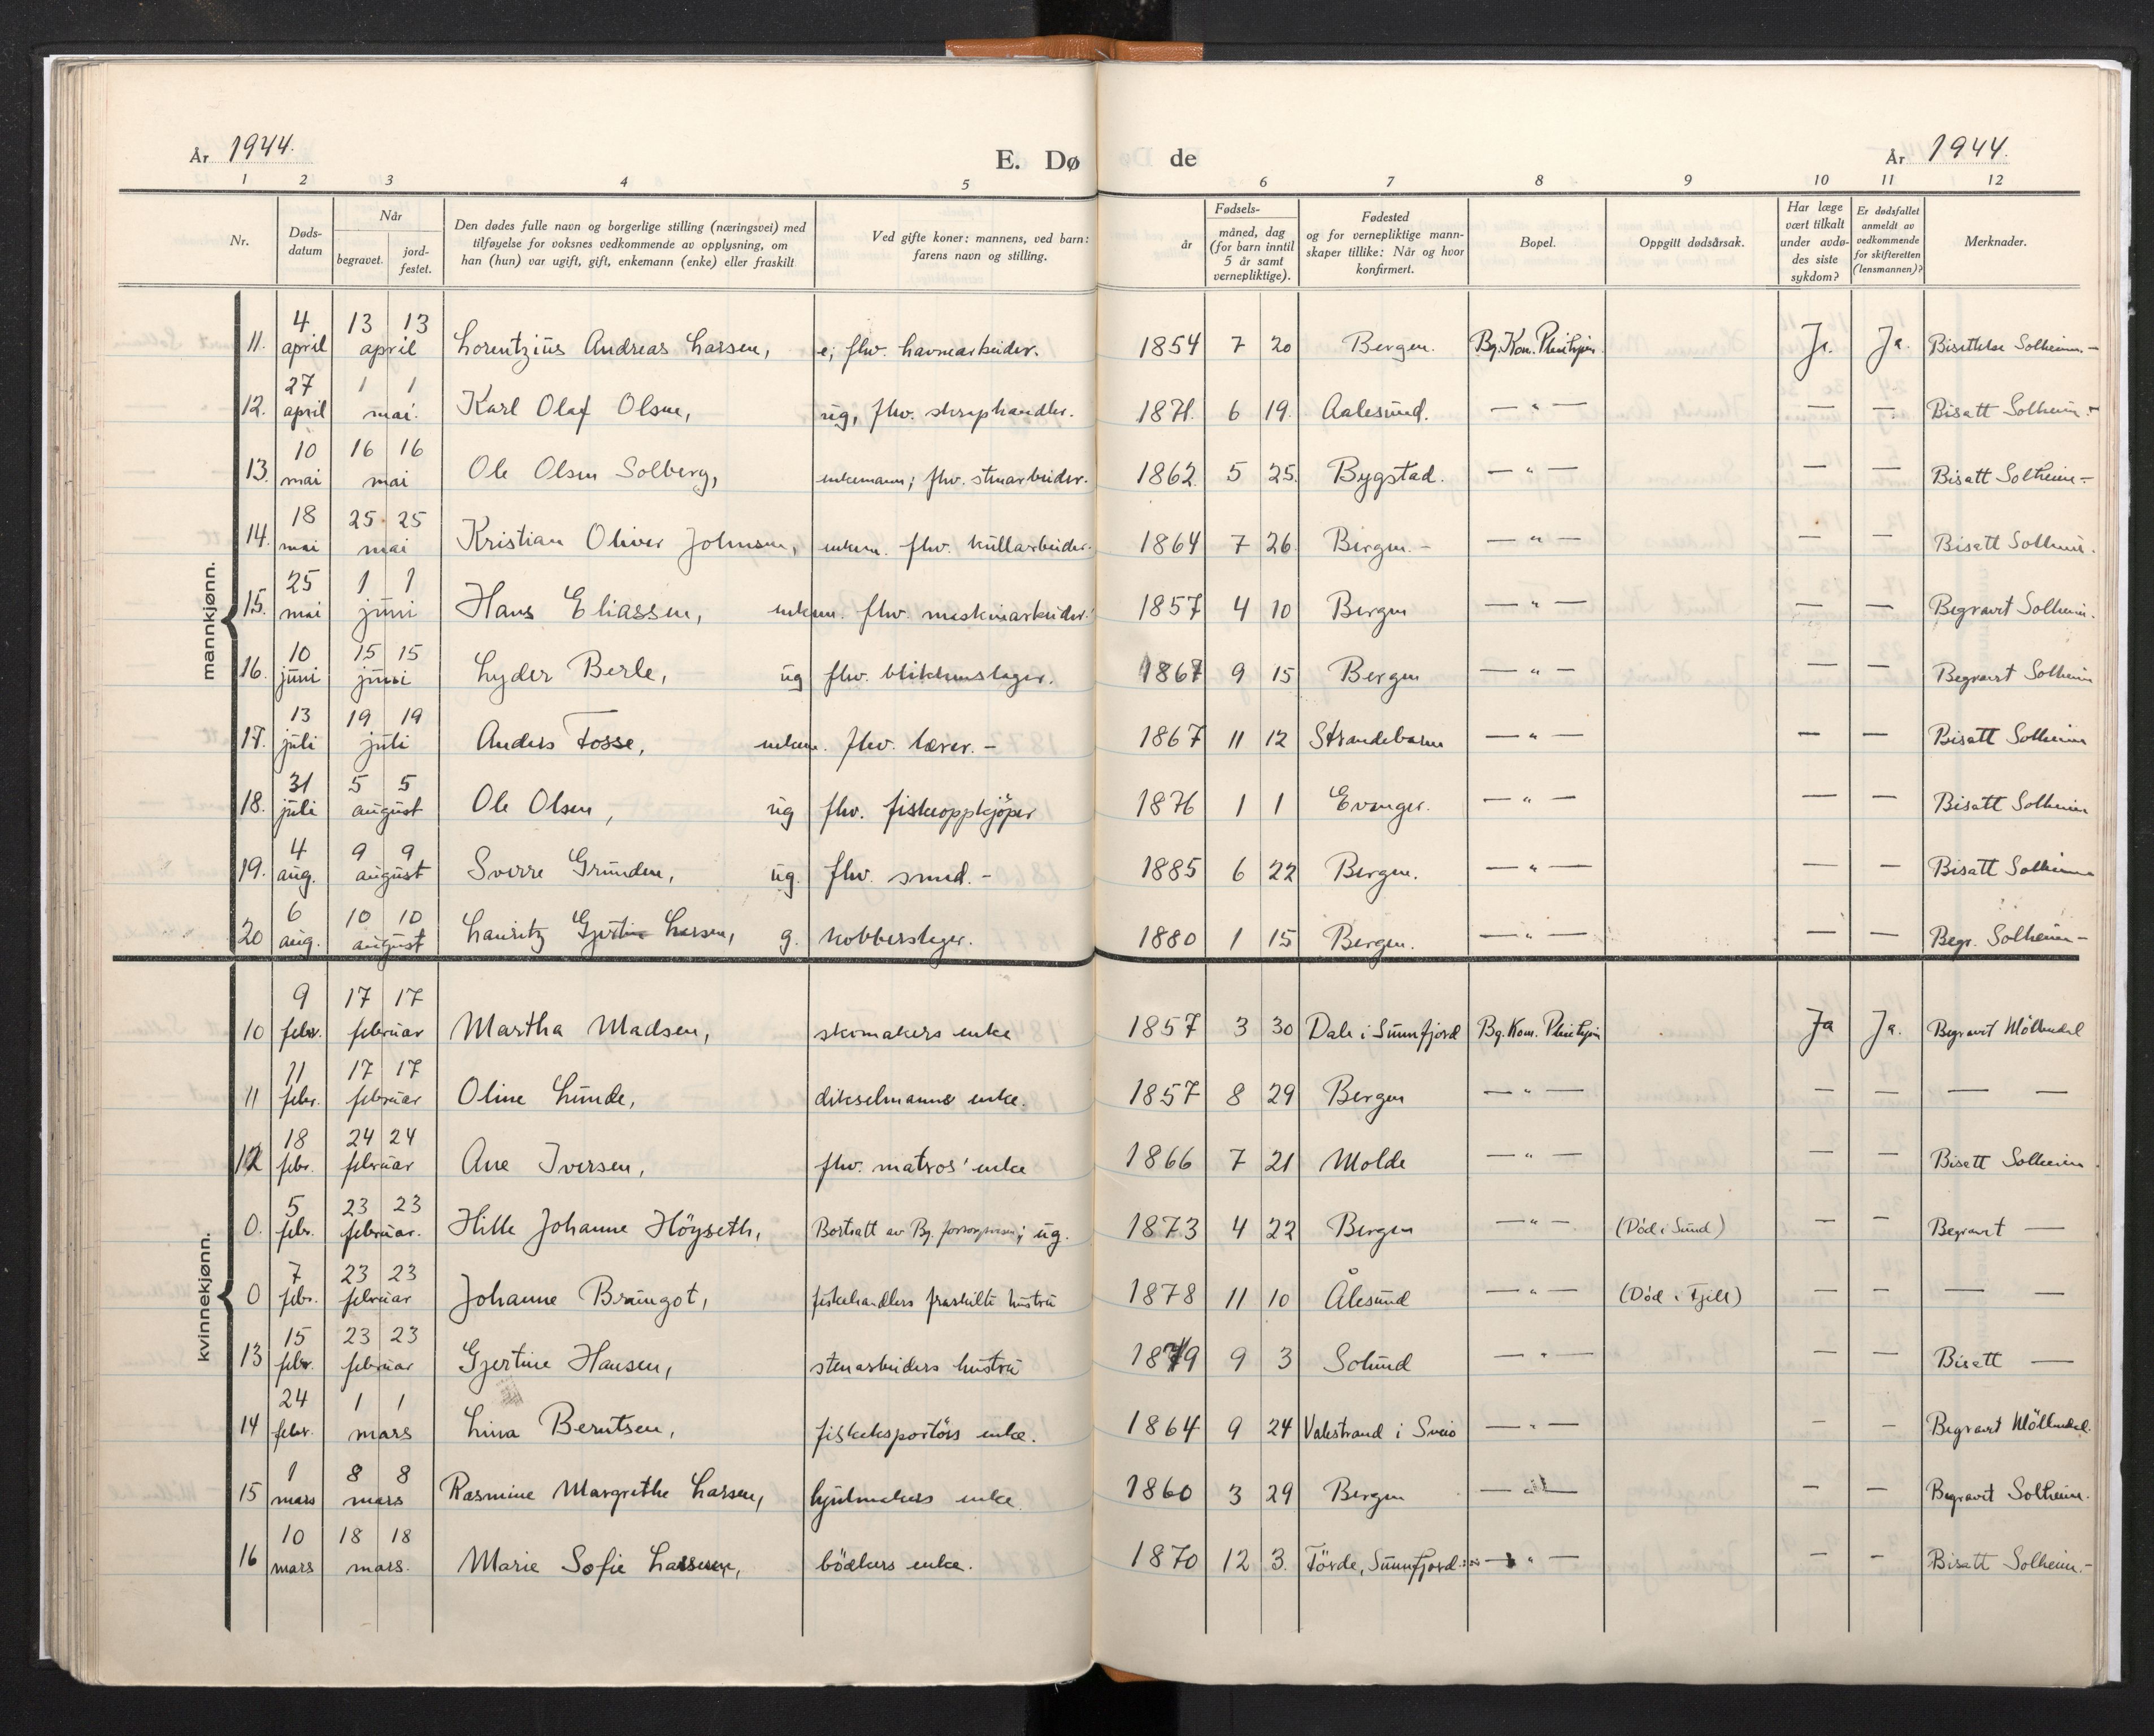 År 1944. E. Dø de År 1944.
1 2 3 4 5 6 7 8 9 10 11 12
Nr. Døds-datum Når begravet. jord-festet. Den dødes fulle navn og borgerlige stilling (næringsvei) med tilføyelse for voksnes vedkommende av opplysning, om han (hun) var ugift, gift, enkemann (enke) eller fraskilt Ved gifte koner: mannens, ved barn: farens navn og stilling. Fødsels- år måned, dag (for barn inntil 5 år samt vernepliktige). Fødested og for vernepliktige mann-skaper tillike: Når og hvor konfirmert. Bopel. Oppgitt dødsårsak. Har læge vært tilkalt under avdø-des siste sykdom? Er dødsfallet anmeldt av vedkommende for skifteretten (lensmannen)? Merknader.
mannkjønn.
11. 4 april 13 13 april Lorentzius Andreas Larsen, e; fhv. havnearbeider. 1854 7 20 Bergen. Bg. Kom. Pleiehjem Ja. Ja. Bisettelse Solheim.-
12. 27 april 1 1 mai. Karl Olaf Olsen, ug, fhv. skraphandler. 1871. 6 19. Aalesund. — " — — — Bisatt Solheim.-
13. 10 mai 16 16 mai Ole Olsen Solberg, enkemann; fhv. stenarbeider. 1862. 5 25. Bygstad. — " — — — Bisatt Solheim-
14. 18 mai 25 25 mai Kristian Oliver Johnsen, enkem. fhv. kullarbeider. 1864 7 26 Bergen.- — " — — — Bisatt Solheim.
15. 25 mai 1 1 juni Hans Eliassen, enkem. fhv. maskinarbeider. 1857 4 10 Bergen — " — — — Begravet Solheim.
16. 10 juni 15 15 juni Lyder Berle, ug fhv. blikkenslager. 1867 9 15 Bergen — " — — — Begravet Solheim
17. 13 juli 19 19 juli Anders Fosse, enkem. fhv. lærer.- 1867 11 12 Strandebarm — " — — — Bisatt Solheim
18. 31 juli 5 5 august Ole Olsen, ug fhv. fiskeoppkjöper 1876 1 1 Evanger. — " — — — Bisatt Solheim
19. 4 aug. 9 9 august Sverre Grunden, ug. fhv. smed.- 1885 6 22 Bergen. — " — — — Bisatt Solheim
20 6 aug. 10 10 august Lauritz Gjertin Larsen, g. kobberslager. 1880 1 15 Bergen. — " — — — Begr. Solheim-
kvinnekjønn.
10 9 febr. 17 17 februar Martha Madsen, skomakers enke 1857 3 30 Dale i Sunnfjord Bg. Kom. Pleiehjem Ja Ja. Begravet Möllendal
11 11 febr. 17 17 februar Oline Lunde, dikselmanns enke. 1857 8 29 Bergen — " — — — — —
12 18 febr. 24 24 februar Ane Iversen, fhv. matros' enke 1866 7 21 Molde — " — — — Bisatt Solheim
0. 5 febr. 23 23 februar. Hille Johanne Höyseth, Bortsatt av Bg. forsorgsvesen; ug. 1873 4 22 Bergen — " — (Död i Sund) — — Begravet —
0 7 febr. 23 23 februar Johanne Braingot, fiskehandlers fraskilte hustru 1878 11 10 Ålesund — " — (Död i Fjell) — — — —
13 15 febr. 23 23 februar Gjertine Hansen, stenarbeiders hustru 1879 9 3 Solund — " — — — Bisatt —
14 24 febr. 1 1 mars Lina Berntsen, fiskeksportörs enke. 1864 9 24 Valestrand i Sveio — " — — — Begravet Möllendal.
15 1 mars 8 8 mars Rasmine Margrethe Larsen, hjulmakers enke. 1860 3 29 Bergen — " — — — Begravet Solheim.
16 10 mars 18 18 mars. Marie Sofie Larssen, bödkers enke. 1870 12 3. Förde, Sunnfjord. — " — — — Bisatt Solheim.-